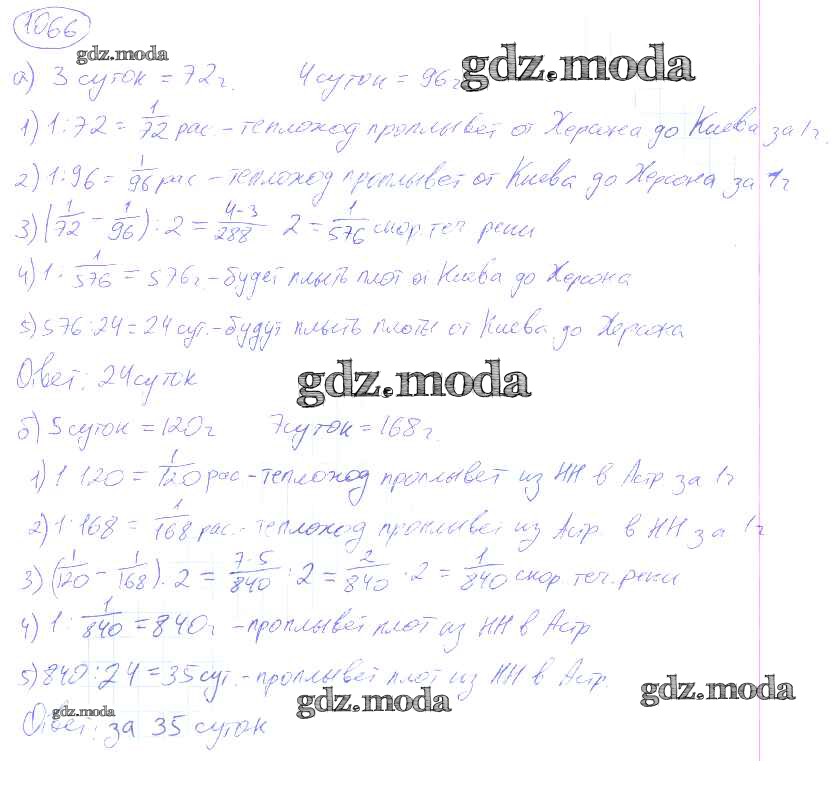 1066
gdz.moda
gdz.moda
а) 3 суток = 72 г. 4 суток = 96 г
1) 1:72 = 1/72 рас. - теплоход проплывет от Херсона до Киева за 1 г.
2) 1:96 = 1/96 рас - теплоход проплывет от Киева до Херсона за 1 г
3) (1/72 - 1/96) : 2 = 4-3/288 2 = 1/576 скор. теч реки
4) 1 · 1/576 = 576 г. - будет плыть плот от Киева до Херсона
5) 576:24 = 24 сут. - будут плыть плоты от Киева до Херсона
Ответ: 24 суток
gdz.moda
б) 5 суток = 120 г 7 суток = 168 г.
1) 1 120 = 1/120 рас - теплоход проплывет из НН в Астр за 1 г
2) 1:168 = 1/168 рас. - теплоход проплывет из Астр. в НН за 1 г
3) (1/120 - 1/168) · 2 = 7-5/840 : 2 = 2/840 · 2 = 1/840 скор. теч. реки
4) 1 : 1/840 = 840 г - проплывет плот из НН в Астр
5) 840:24 = 35 сут. - проплывет плот из НН в Астр.
gdz.moda
gdz.moda
gdz.moda
Ответ: за 35 суток